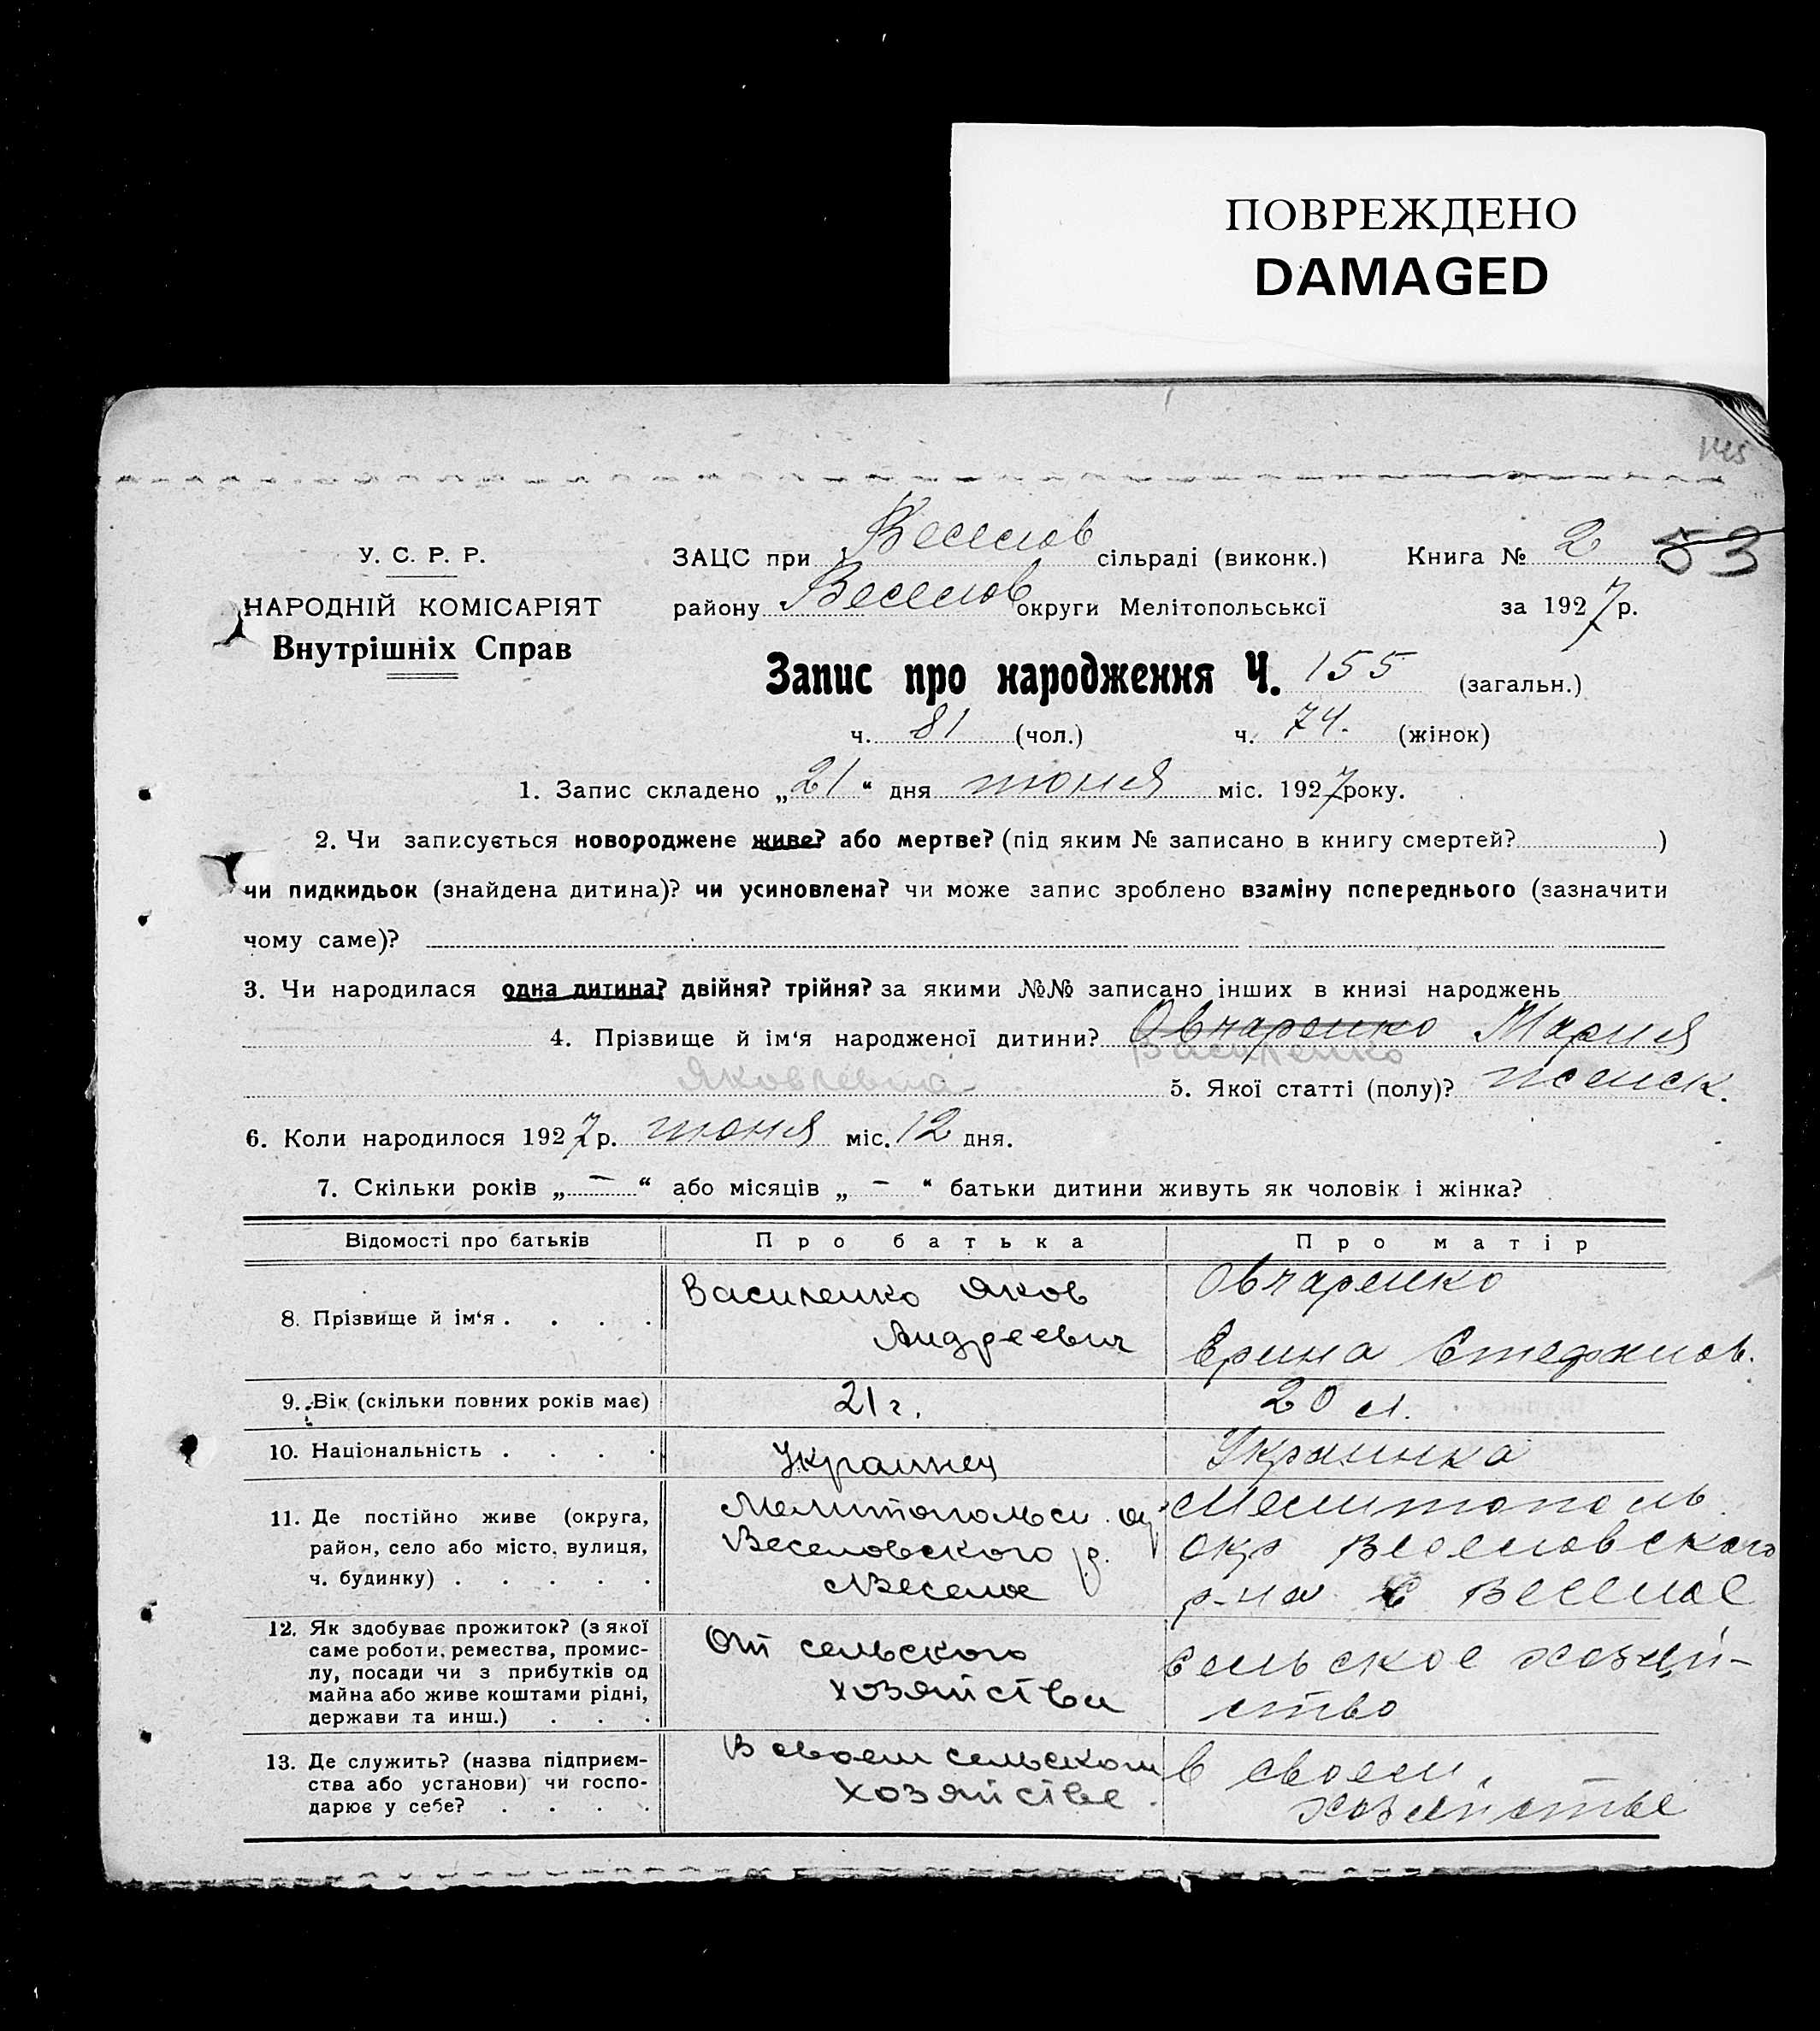 ПОВРЕЖДЕНО
DAMAGED
145
У. С. Р. Р.
НАРОДНІЙ КОМІСАРІЯТ
Внутрішніх Справ
ЗАЦС при Веселов сільраді (виконк.) Книга № 2 53
району Веселов округи Мелітопольської за 1927 р.
Запис про народження Ч. 155 (загальн.)
ч. 81 (чол.) ч. 74. (жінок)
1. Запис складено „21“ дня июня міс. 1927 року.
2. Чи записується новороджене живе? або мертве? (під яким № записано в книгу смертей? )
чи пидкидьок (знайдена дитина)? чи усиновлена? чи може запис зроблено взаміну попереднього (зазначити
чому саме)?
3. Чи народилася одна дитина? двійня? трійня? за якими №№ записано інших в книзі народжень
4. Прізвище й ім‘я народженої дитини? Овчаренко Мария
Василенко
Яковлевна 5. Якої статті (полу)? женск.
6. Коли народилося 1927 р. июня міс. 12 дня.
7. Скільки років „ — “ або місяців „ — “ батьки дитини живуть як чоловік і жінка?
Відомості про батьків Про батька Про матір
8. Прізвище й ім‘я . . . .
Василенко Яков
Андреевич
Овчаренко
Ерина Стефанов.
9. Вік (скільки повних років має) 21 г. 20 л.
10. Національність . . . . Украинец Украинка
11. Де постійно живе (округа,
район, село або місто, вулиця,
ч. будинку) . . . . .
Мелитопольск. ок
Веселовского р.
с Веселое
Мелитополь.
окр Веселовского
р-на С Веселое
12. Як здобуває прожиток? (з якої
саме роботи, ремества, промис-
лу, посади чи з прибутків од
майна або живе коштами рідні,
держави та инш.) . . .
От сельского
хозяйства
Сельское хозяй-
ство
13. Де служить? (назва підприєм-
ства або установи) чи госпо-
дарює у себе? . . . .
В своем сельском
хозяйстве.
в своем
хозяйстве